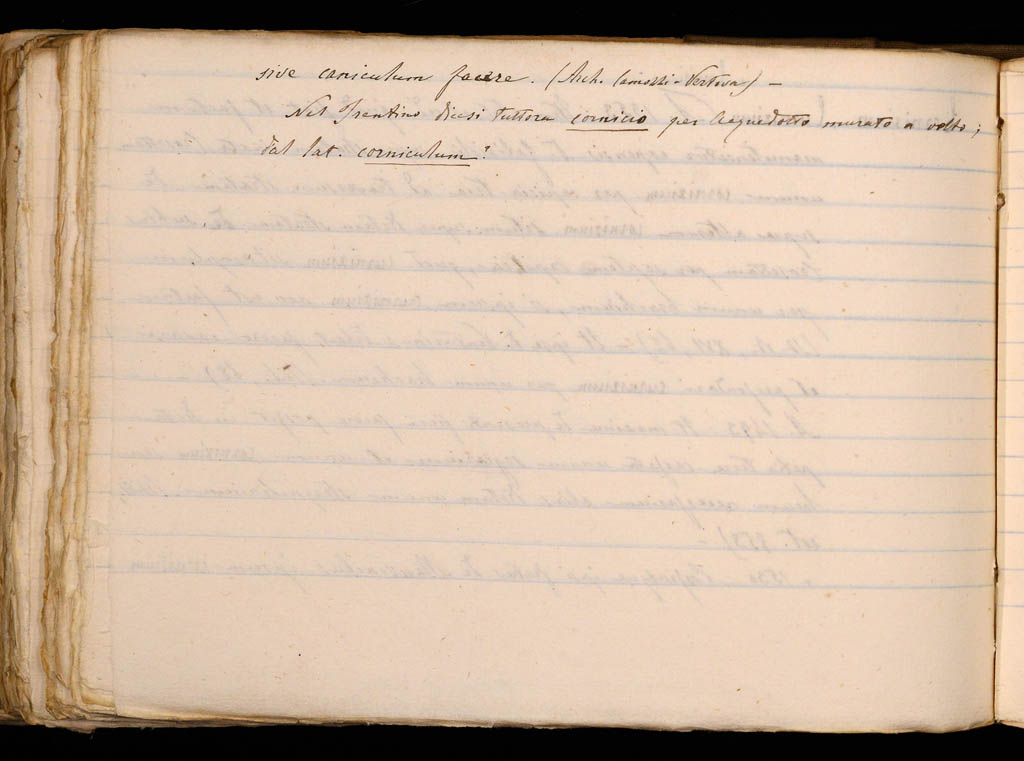 sive caniculum facere. (Arch. Camozzi-Vertova) –
Nel Trentino dicesi tuttora cornicio per Acquedotto murato a volto;
dal lat. corniculum?